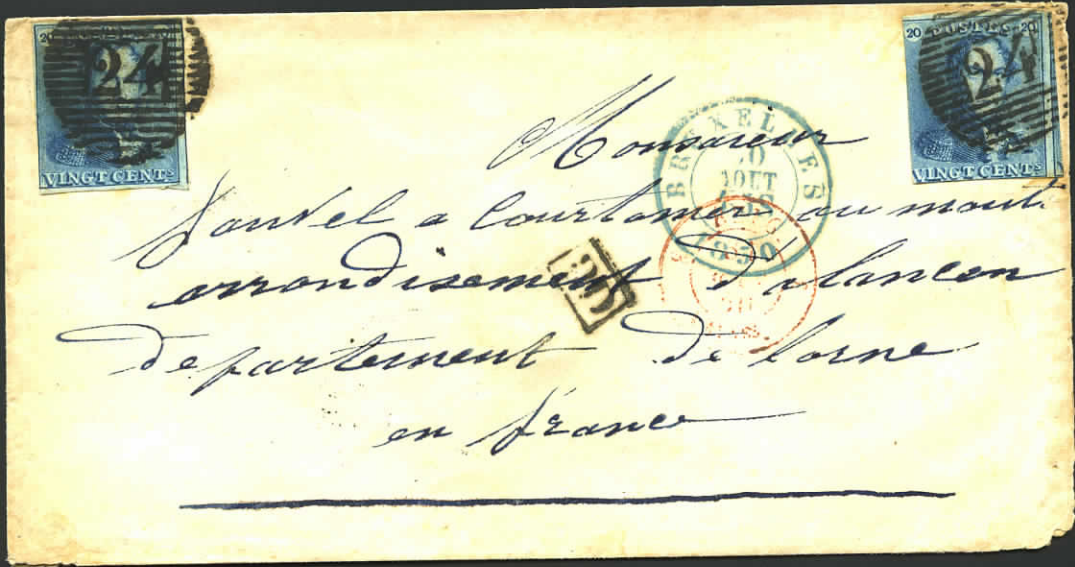 20 POSTES 20
24
VINGT CENTS
20 POSTES 20
24
VINGT CENTS
BRUXELLES
AOUT
1850
Monsieur
a Courtomer au mont.
arrondisement d'alancon
departement De lorne
en france